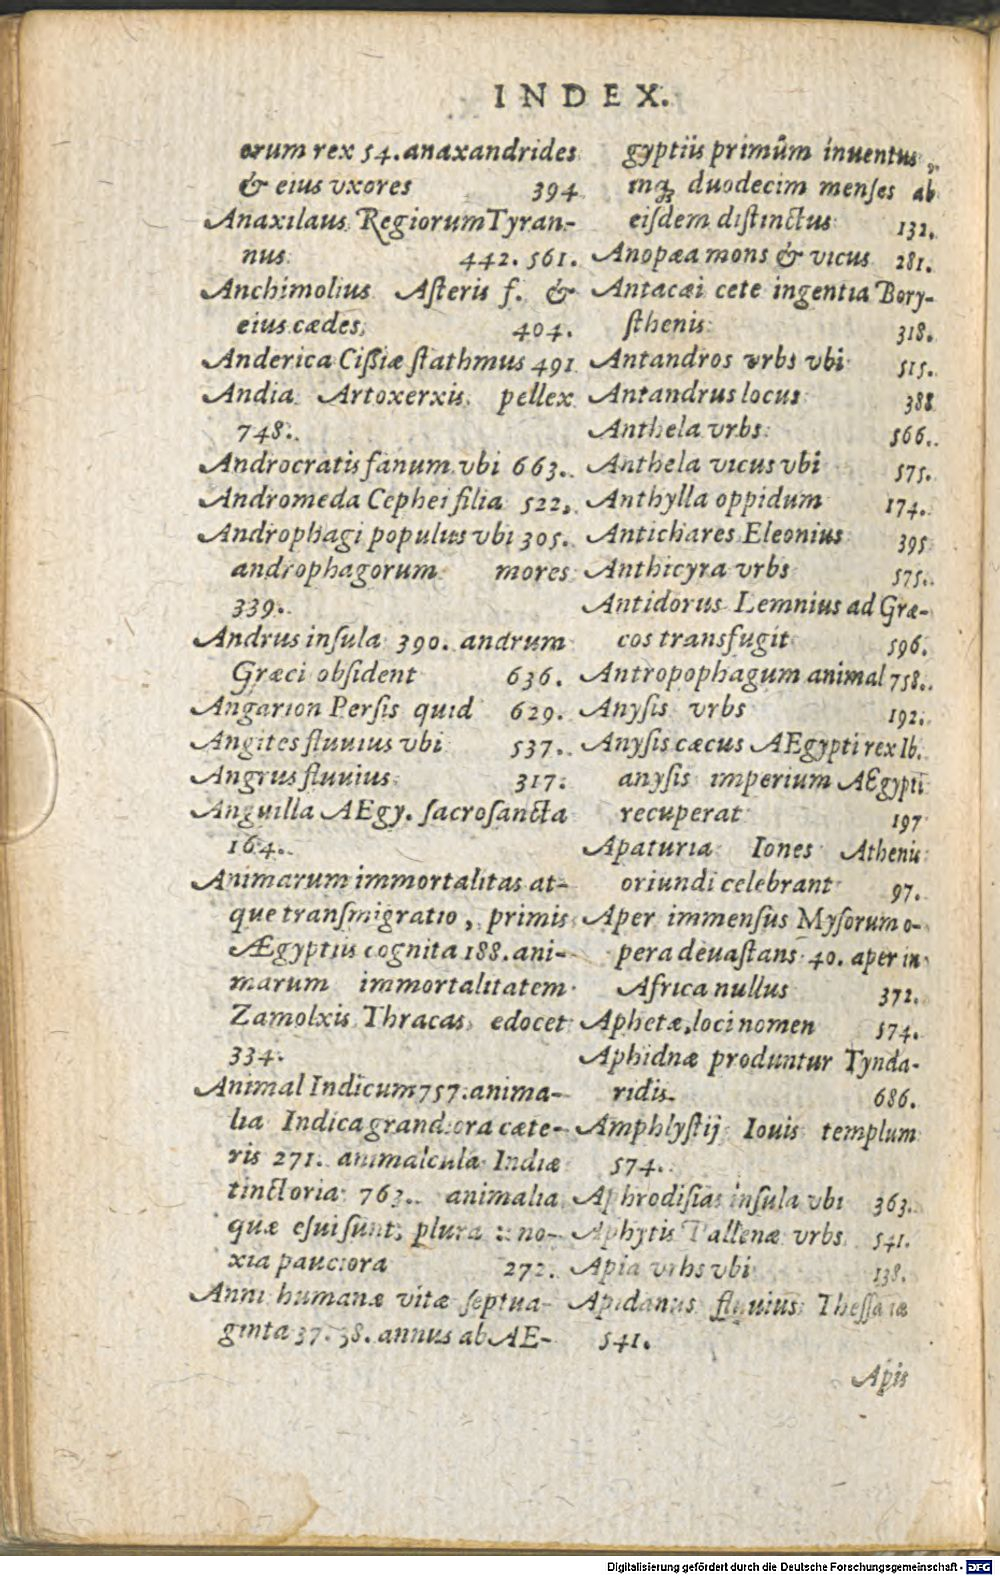 INDEX.
orum rex 54. anaxandrides
& eius vxores 394
Anaxilaus Regiorum Tyran-
nus 442. 561.
Anchimolius Aſteris f. &
eius cædes, 404.
Anderica Ciſſiæ ſtathmus 491
Andia Artoxerxis pellex
748.
Androcratis fanum vbi 663.
Andromeda Cephei filia 522,
Androphagi populus vbi 305.
androphagorum mores
339.
Andrus inſula 390. andrum
Græci obſident 636.
Angarion Perſis quid 629.
Angites fluuius vbi 537.
Angrus fluuius 317.
Anguilla AEgy. ſacroſancta
164.
Animarum immortalitas at-
que tranſmigratio, primis
Ægyptiis cognita 188. ani-
marum immortalitatem
Zamolxis Thracas edocet
334.
Animal Indicum 757. anima-
lia Indica grandiora cæte-
ris 271. animalcula Indiæ
tinctoria 763. animalia
quæ eſui ſunt, plura : no-
xia pauciora 272.
Anni humanæ vitæ ſeptua-
ginta 37. 38. annus ab AE-
gyptiis primũm inuentus,
inq; duodecim menſes ab
eiſdem diſtinctus 132.
Anopæa mons & vicus 281.
Antacæi cete ingentia Bory-
ſthenis 318.
Antandros vrbs vbi 515.
Antandrus locus 388
Anthela vrbs 566.
Anthela vicus vbi 575.
Anthylla oppidum 174.
Antichares Eleonius 395
Anthicyra vrbs 575.
Antidorus Lemnius ad Græ-
cos transfugit 596.
Antropophagum animal 758.
Anyſis vrbs 192.
Anyſis cæcus AEgypti rex Ib.
anyſis imperium AEgypti
recuperat 197
Apaturia Iones Atheniis
oriundi celebrant 97.
Aper immenſus Myſorum o-
pera deuaſtans 40. aper in
Africa nullus 372.
Aphetæ, loci nomen 574.
Aphidnæ produntur Tynda-
ridis. 686.
Amphlyſtij Iouis templum
574.
Aphrodiſias inſula vbi 363.
Aphytis Pallenæ vrbs 541.
Apia vrbs vbi 138.
Apidanus fluuius Theſſaliæ
541.
Apis
Digitalisierung gefördert durch die Deutsche Forschungsgemeinschaft - DFG